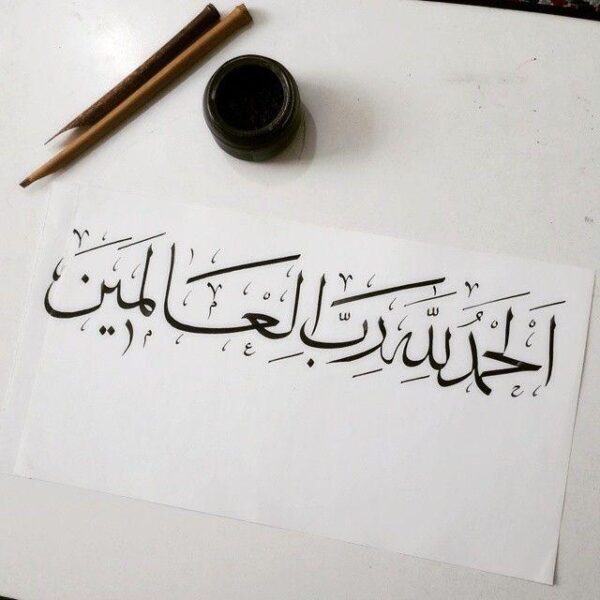 اَلْحَمْدُ لِلّٰهِ رَبِّ الْعَالَمِينَ